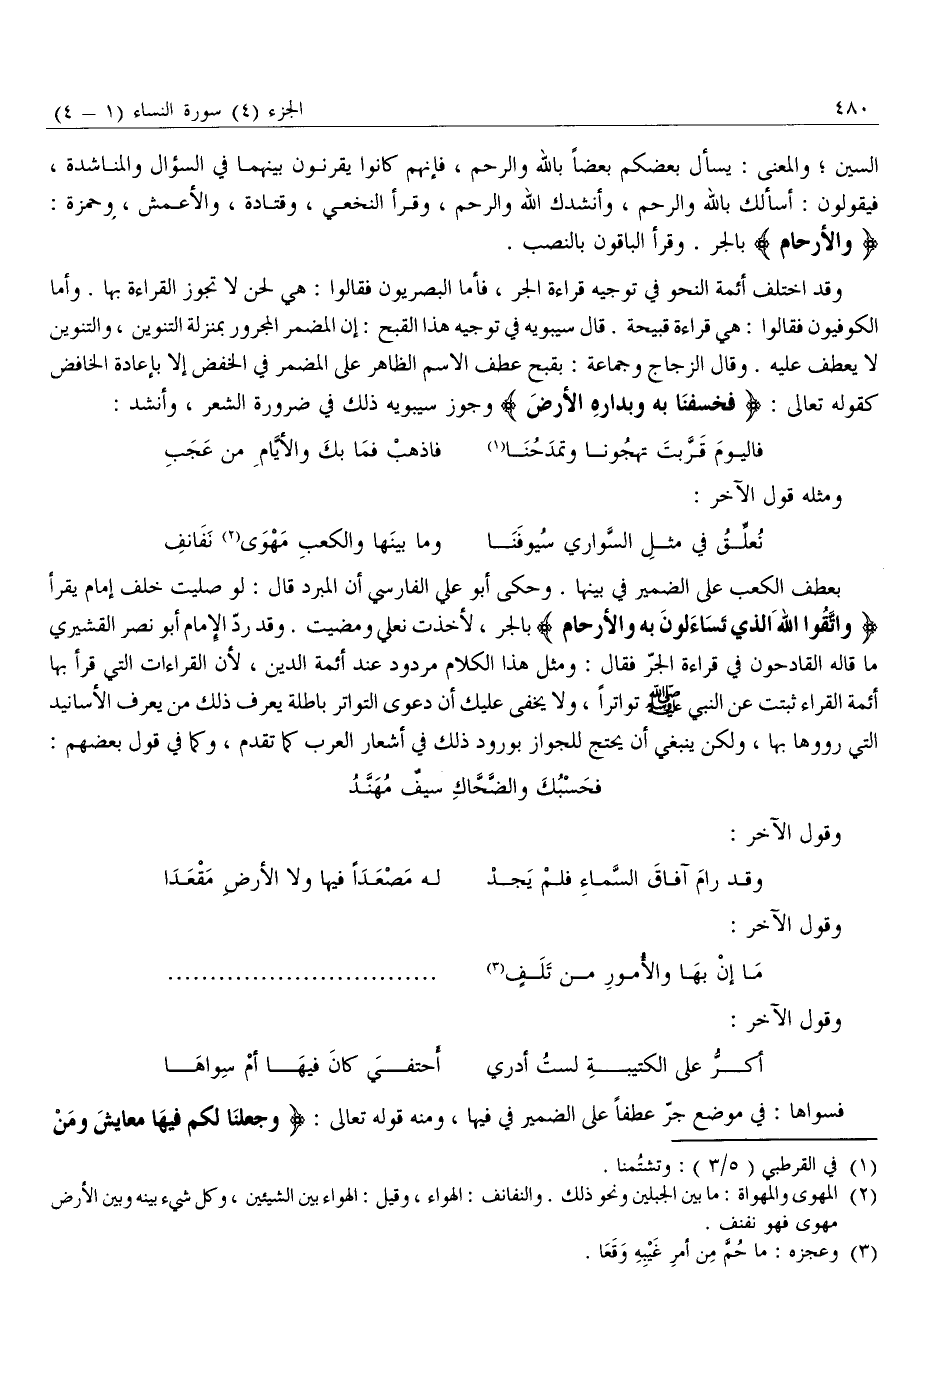 ٤٨٠
الجزء (٤) سورة النساء (١ – ٤)
السين ؛ والمعنى : يسأل بعضكم بعضاً بالله والرحم ، فإنهم كانوا يقرنون بينهما في السؤال والمناشدة ،
فيقولون : أسألك بالله والرحم ، وأنشدك الله والرحم ، وقرأ النخعي ، وقتادة ، والأعمش ، وحمزة :
﴿ والأرحام ﴾ بالجر . وقرأ الباقون بالنصب .
وقد اختلف أئمة النحو في توجيه قراءة الجر ، فأما البصريون فقالوا : هي لحن لا تجوز القراءة بها . وأما
الكوفيون فقالوا : هي قراءة قبيحة . قال سيبويه في توجيه هذا القبح : إن المضمر المجرور بمنزلة التنوين ، والتنوين
لا يعطف عليه . وقال الزجاج وجماعة : بقبح عطف الاسم الظاهر على المضمر في الخفض إلا بإعادة الخافض
كقوله تعالى : ﴿ فخسفنَا به وبدارهِ الأرضَ ﴾ وجوز سيبويه ذلك في ضرورة الشعر ، وأنشد :
فاليومَ قَرَّبتَ تهجُونا وتمدَحُنَا(١) فاذهبْ فمَا بكَ والأيَّامِ من عَجَبِ
ومثله قول الآخر :
نُعلِّقُ في مثلِ السَّواري سيُوفَنَا وما بينَها والكعبِ مَهْوَى(٢) نَفَانفِ
بعطف الكعب على الضمير في بينها . وحكى أبو علي الفارسي أن المبرد قال : لو صليت خلف إمام يقرأ
﴿ واتَّقُوا اللهَ الذي تَسَاءَلونَ به والأرحام ﴾ بالجر ، لأخذت نعلي ومضيت . وقد ردّ الإمام أبو نصر القشيري
ما قاله القادحون في قراءة الجرّ فقال : ومثل هذا الكلام مردود عند أئمة الدين ، لأن القراءات التي قرأ بها
أئمة القراء ثبتت عن النبي ﷺ تواتراً ، ولا يخفى عليك أن دعوى التواتر باطلة يعرف ذلك من يعرف الأسانيد
التي رووها بها ، ولكن ينبغي أن يحتج للجواز بورود ذلك في أشعار العرب كما تقدم ، وكما في قول بعضهم :
فحَسْبُكَ والضَّحَّاكِ سيفٌ مُهَنَّدُ
وقول الآخر :
وقد رامَ آفاقَ السَّماءِ فلمْ يَجدْ له مَصْعَدَاً فيها ولا الأرضِ مَقْعَدَا
وقول الآخر :
مَا إنْ بهَا والأُمورِ من تَلَفٍ(٣) ................................
وقول الآخر :
أكرُّ على الكتيبةِ لستُ أدري أَحتفيَ كانَ فيهَا أمْ سِواهَا
فسواها : في موضع جرّ عطفاً على الضمير في فيها ، ومنه قوله تعالى : ﴿ وجعلنَا لكم فيهَا معايشَ ومَنْ
(١) في القرطبي ( ٣/٥ ) : وتشتُمنا .
(٢) المهوى والمهواة : ما بين الجبلين ونحو ذلك . والنفانف : الهواء ، وقيل : الهواء بين الشيئين ، وكل شيء بينه وبين الأرض
مهوى فهو نفنف .
(٣) وعجزه : ما حُمَّ مِن أمرِ غَيْبِهِ وَقَعَا .